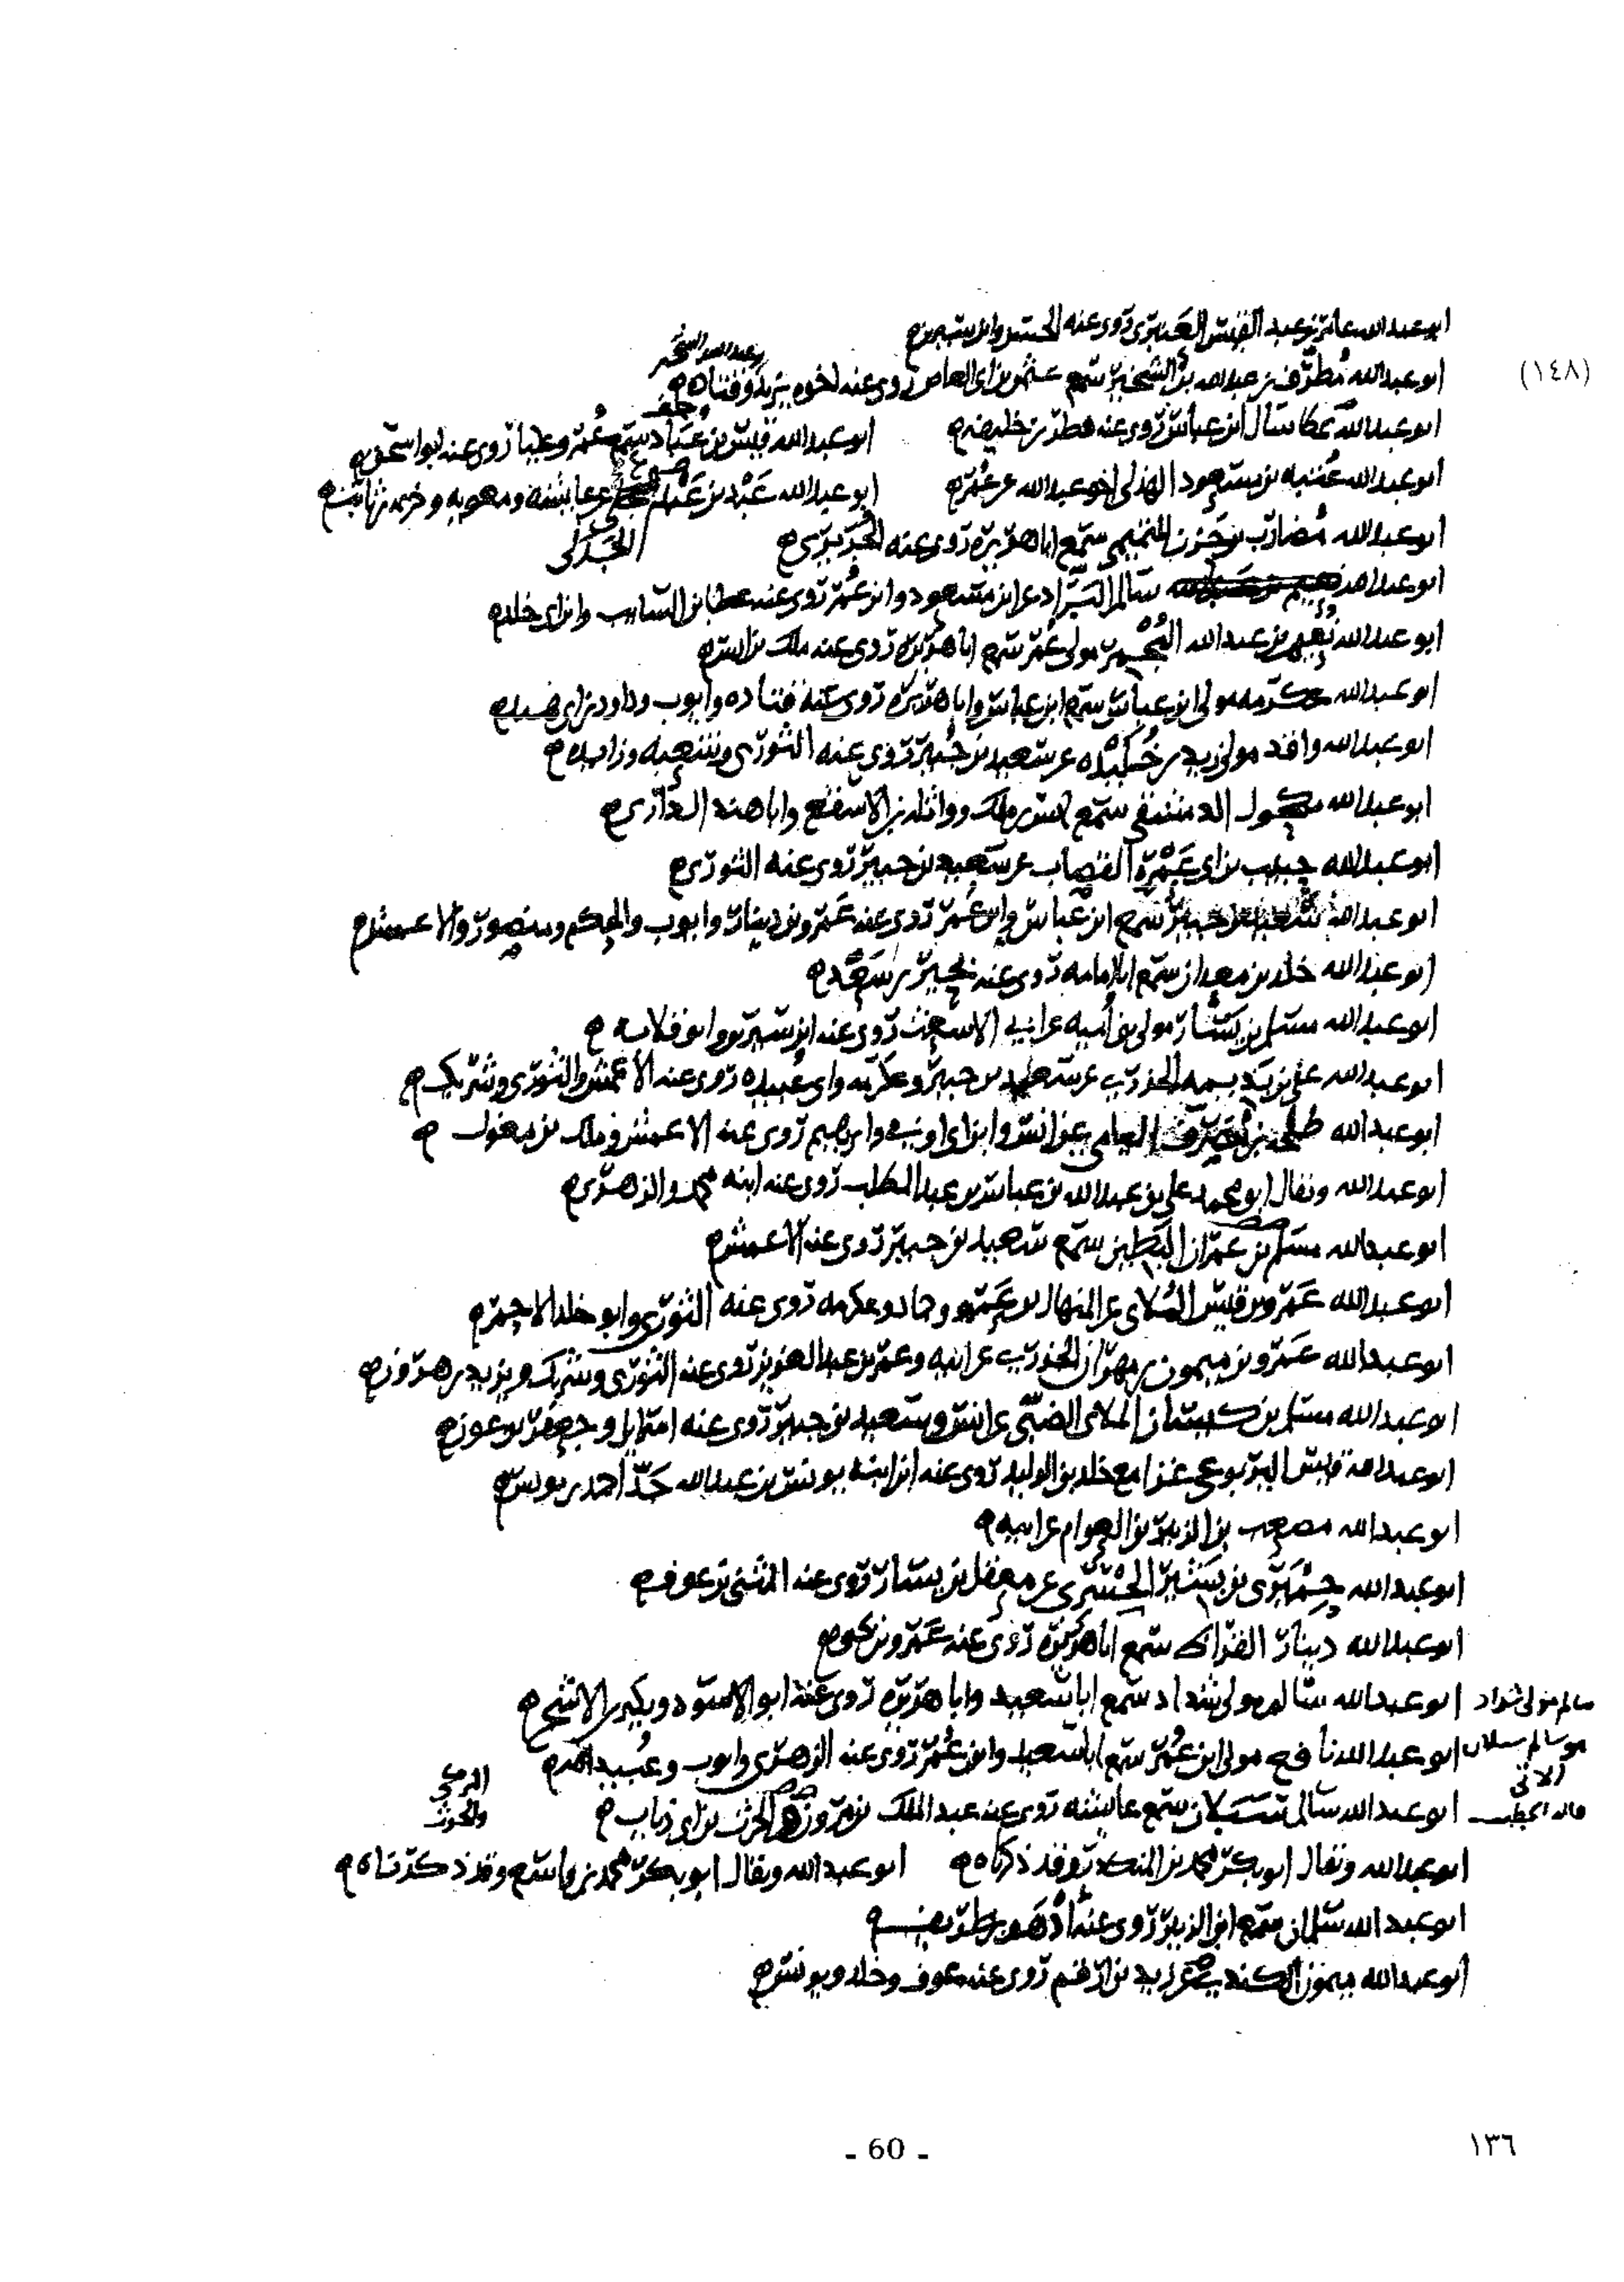 ابو عبدالله عامر بن عبد القيس العنبري روى عنه الحسن وابن سيرين
(١٤٨)
ابو عبدالله مطرف بن عبدالله بن الشخير سمع عثمن بن ابى العاص روى عنه اخوه يزيد وقتاده
ابو عبدالله سال ابن عباس روى عنه فطر بن خليفه ابو عبدالله قيس بن عباد سمع عمر وعليا روى عنه ابو اسحق
ابو عبدالله عتبه بن مسعود الهذلى اخو عبدالله عن عمر ابو عبدالله عبد بن عبد عن عايشه ومعويه وخزيمه بن ثابت
الجدلى
ابو عبدالله مضارب بن حزن التميمى سمع ابا هريره روى عنه الجريرى
ابو عبدالله سالم البراد عن ابن مسعود وابن عمر روى عنه عطا بن السايب وابن ابى خلد
ابو عبدالله نعيم بن عبدالله المجمر مولى عمر سمع ابا هريره روى عنه ملك بن انس
ابو عبدالله عكرمه مولى ابن عباس سمع ابن عباس وابا هريره روى عنه قتاده وايوب وداود بن ابى هند
ابو عبدالله واقد مولى زيد بن خليده عن سعيد بن جبير روى عنه الثورى وشعبه وزايده
ابو عبدالله مكحول الدمشقى سمع انس بن ملك وواثله بن الاسقع وابا هند الدارى
ابو عبدالله حبيب بن ابى عمره القصاب عن سعيد بن جبير روى عنه الثورى
ابو عبدالله سعيد بن جبير سمع ابن عباس وابن عمر روى عنه عمرو بن دينار وايوب والحكم ومنصور والاعمش
ابو عبدالله خلد بن معدان سمع ابا امامه روى عنه بحير بن سعد
ابو عبدالله مسلم بن يسار مولى بنى اميه عن ابى الاشعث روى عنه ابن سيرين وابو قلابه
ابو عبدالله على بن بذيمه الجزرى عن سعيد بن جبير وعكرمه وابى عبيده روى عنه الاعمش والثورى وشريك
ابو عبدالله طلحه بن مصرف اليامى عن انس وابن ابى اوفى وابرهيم روى عنه الاعمش وملك بن مغول
ابو عبدالله ويقال ابو محمد على بن عبدالله بن عباس بن عبد المطلب روى عنه ابنه محمد والزهرى
ابو عبدالله مسلم بن عمران البطين سمع سعيد بن جبير روى عنه الاعمش
ابو عبدالله عمرو بن قيس الملاى عن المنهال بن عمرو وحماد وعكرمه روى عنه الثورى وابو خلد الاحمر
ابو عبدالله عمرو بن ميمون بن مهران الجزرى عن ابيه وعمر بن عبد العزيز روى عنه الثورى وشريك ويزيد بن هرون
ابو عبدالله مسلم بن كيسان الملاى الضبى عن انس وسعيد بن جبير روى عنه اسرايل وجعفر بن عون
ابو عبدالله قيس اليربوعى غزا مع خلد بن الوليد روى عنه ابن ابنه يونس بن عبدالله جد احمد بن يونس
ابو عبدالله مصعب بن الزبير بن العوام عن ابيه
ابو عبدالله جسرى عن معقل بن يسار روى عنه المثنى بن عوف
ابو عبدالله دينار القراظ سمع ابا هريره روى عنه عمرو بن
ابو عبدالله سالم مولى شداد سمع ابا سعيد وابا هريره روى عنه ابو الاسود وبكير بن الاشج
سالم مولى شداد
ابو عبدالله نافع مولى ابن عمر سمع ابا سعيد وابن عمر روى عنه الزهرى وايوب وعبيدالله
هو سالم سبلان الاتى
ابو عبدالله سالم سبلان سمع عايشه روى عنه عبد الملك بن مروان بن الحرث بن ابى ذباب
قاله الخطيب
ابو عبدالله ويقال ابو بكر محمد بن المنكدر وقد ذكرناه ابو عبدالله ويقال ابو بكر محمد بن واسع وقد ذكرناه
ابو عبدالله سلمان سمع ابن الزبير روى عنه
ابو عبدالله ميمون الكندى عن زيد بن ارقم روى عنه عوف وخلد ويونس
- 60 -
١٣٦